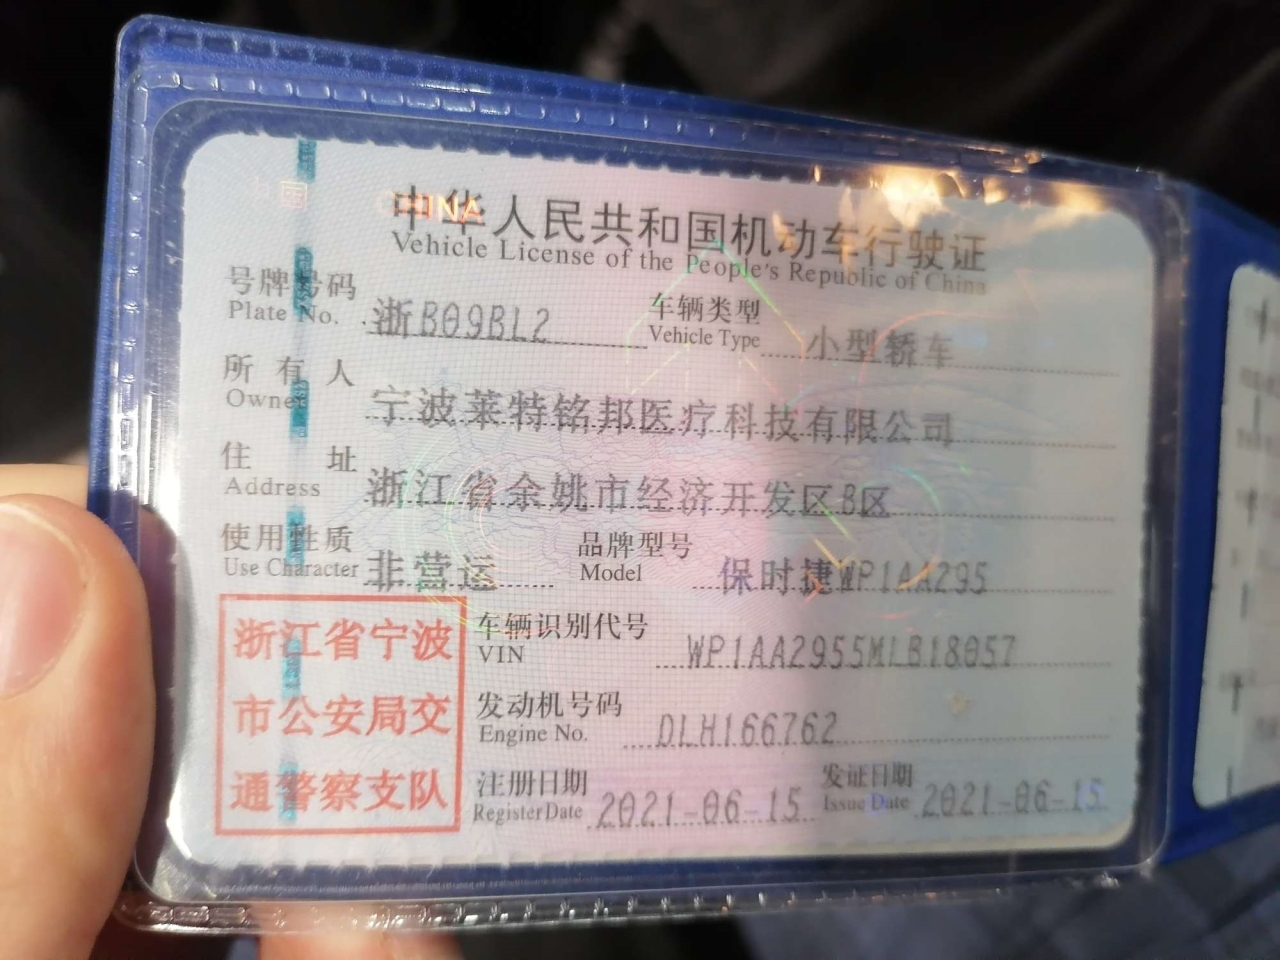 CHINA
中华人民共和国机动车行驶证
Vehicle License of the People's Republic of China
号牌号码 浙B09BL2 车辆类型 小型轿车
Plate No. Vehicle Type
所有人 宁波莱特铭邦医疗科技有限公司
Owner
住址 浙江省余姚市经济开发区B区
Address
使用性质 非营运 品牌型号 保时捷WP1AA295
Use Character Model
浙江省宁波
市公安局交
通警察支队
车辆识别代号 WP1AA2955MLB18057
VIN
发动机号码 DLH166762
Engine No.
注册日期 2021-06-15 发证日期 2021-06-15
Register Date Issue Date